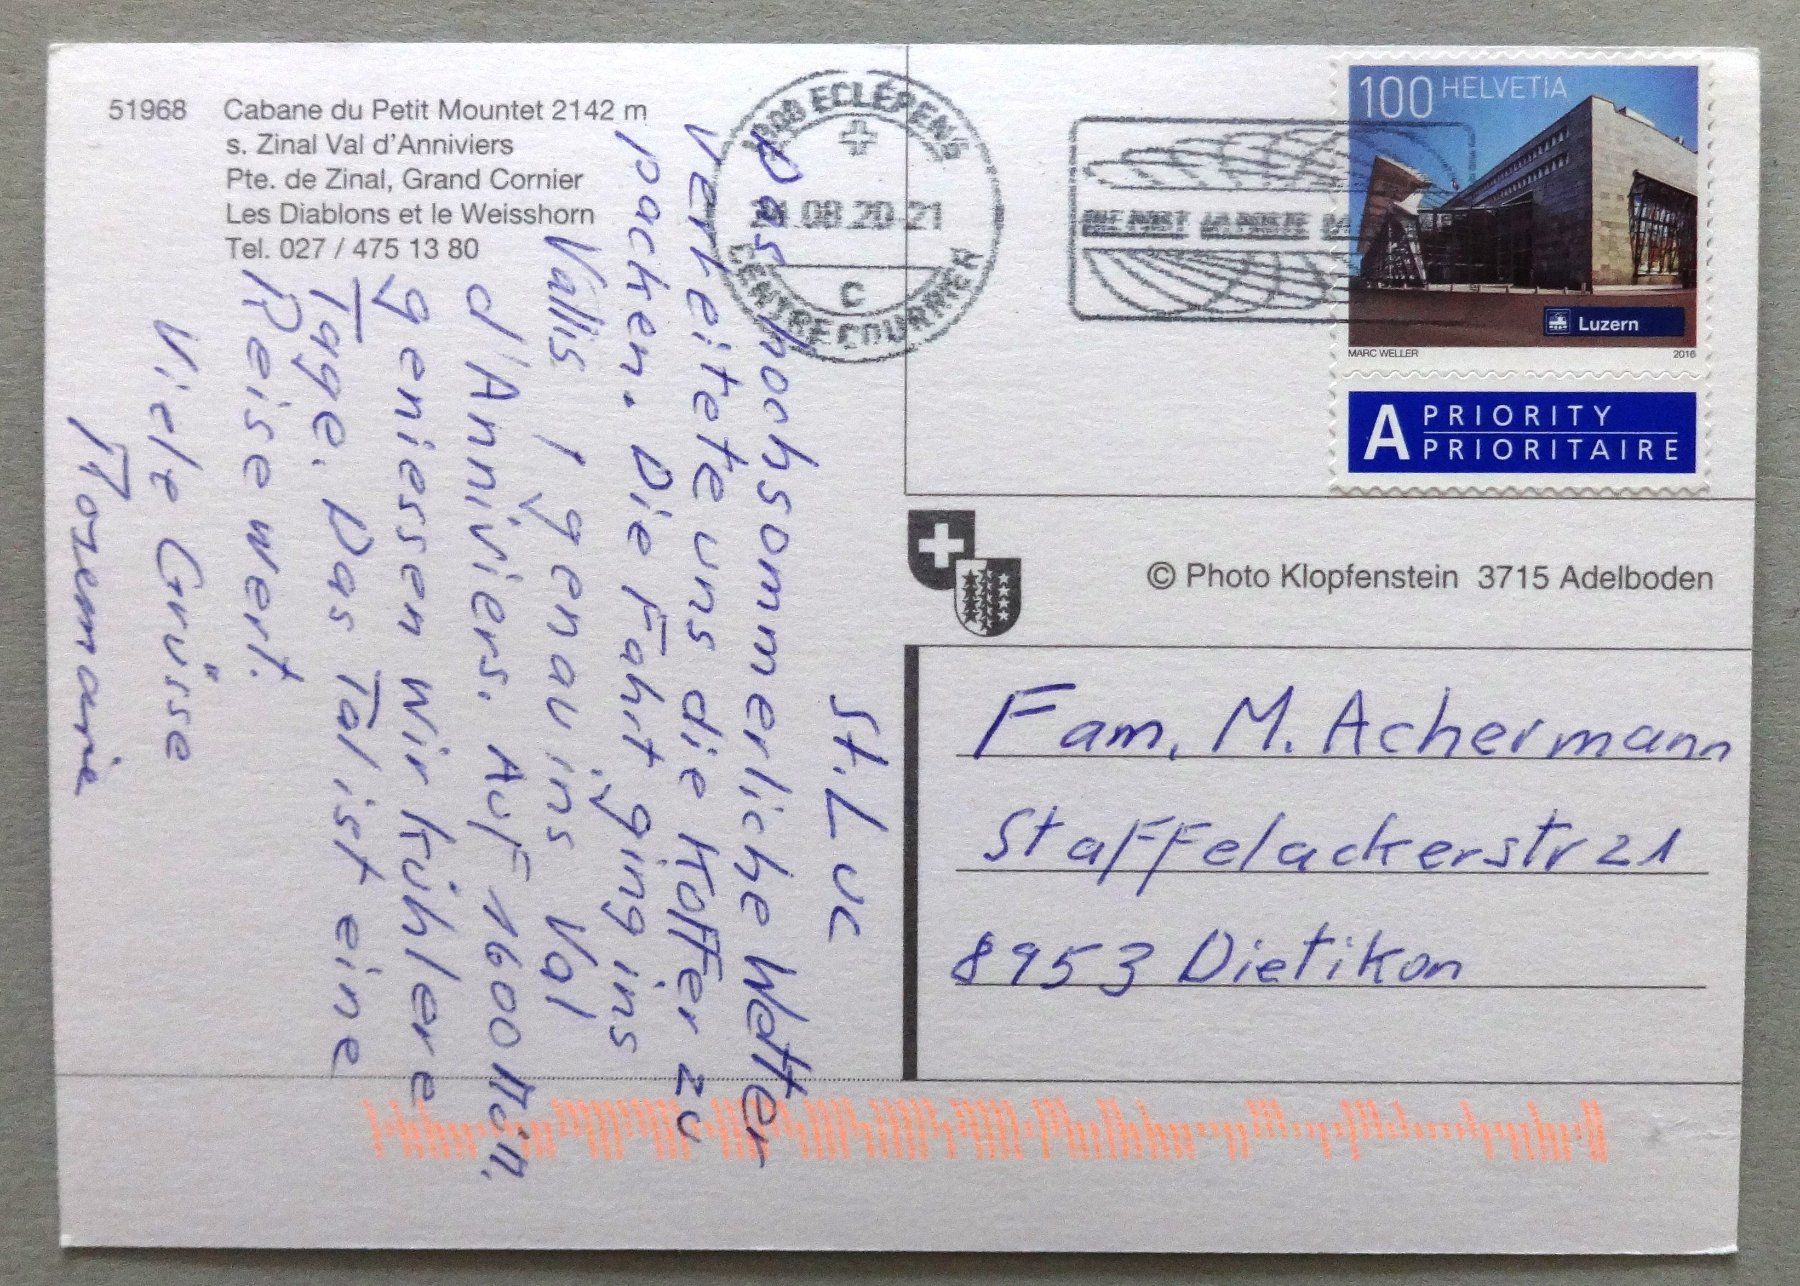 51968 Cabane du Petit Mountet 2142 m
s. Zinal Val d'Anniviers
Pte. de Zinal, Grand Cornier
Les Diablons et le Weisshorn
Tel. 027 / 475 13 80
ECLÉPENS
.08.20-21
C
CENTRE COURRIER
DIE POST LA POSTE
100 HELVETIA
Luzern
MARC WELLER 2016
A PRIORITY
PRIORITAIRE
© Photo Klopfenstein 3715 Adelboden
St. Luc
Das hochsommerliche Wetter
verleitete uns die Koffer zu
packen. Die Fahrt ging ins
Vallis, genau ins Val
d'Anniviers. Auf 1600 m.ü.M.
geniessen wir kühlere
Tage. Das Tal ist eine
Reise wert.
Viele Grüsse
Rosemarie
Fam. M. Achermann
Staffelackerstr 21
8953 Dietikon